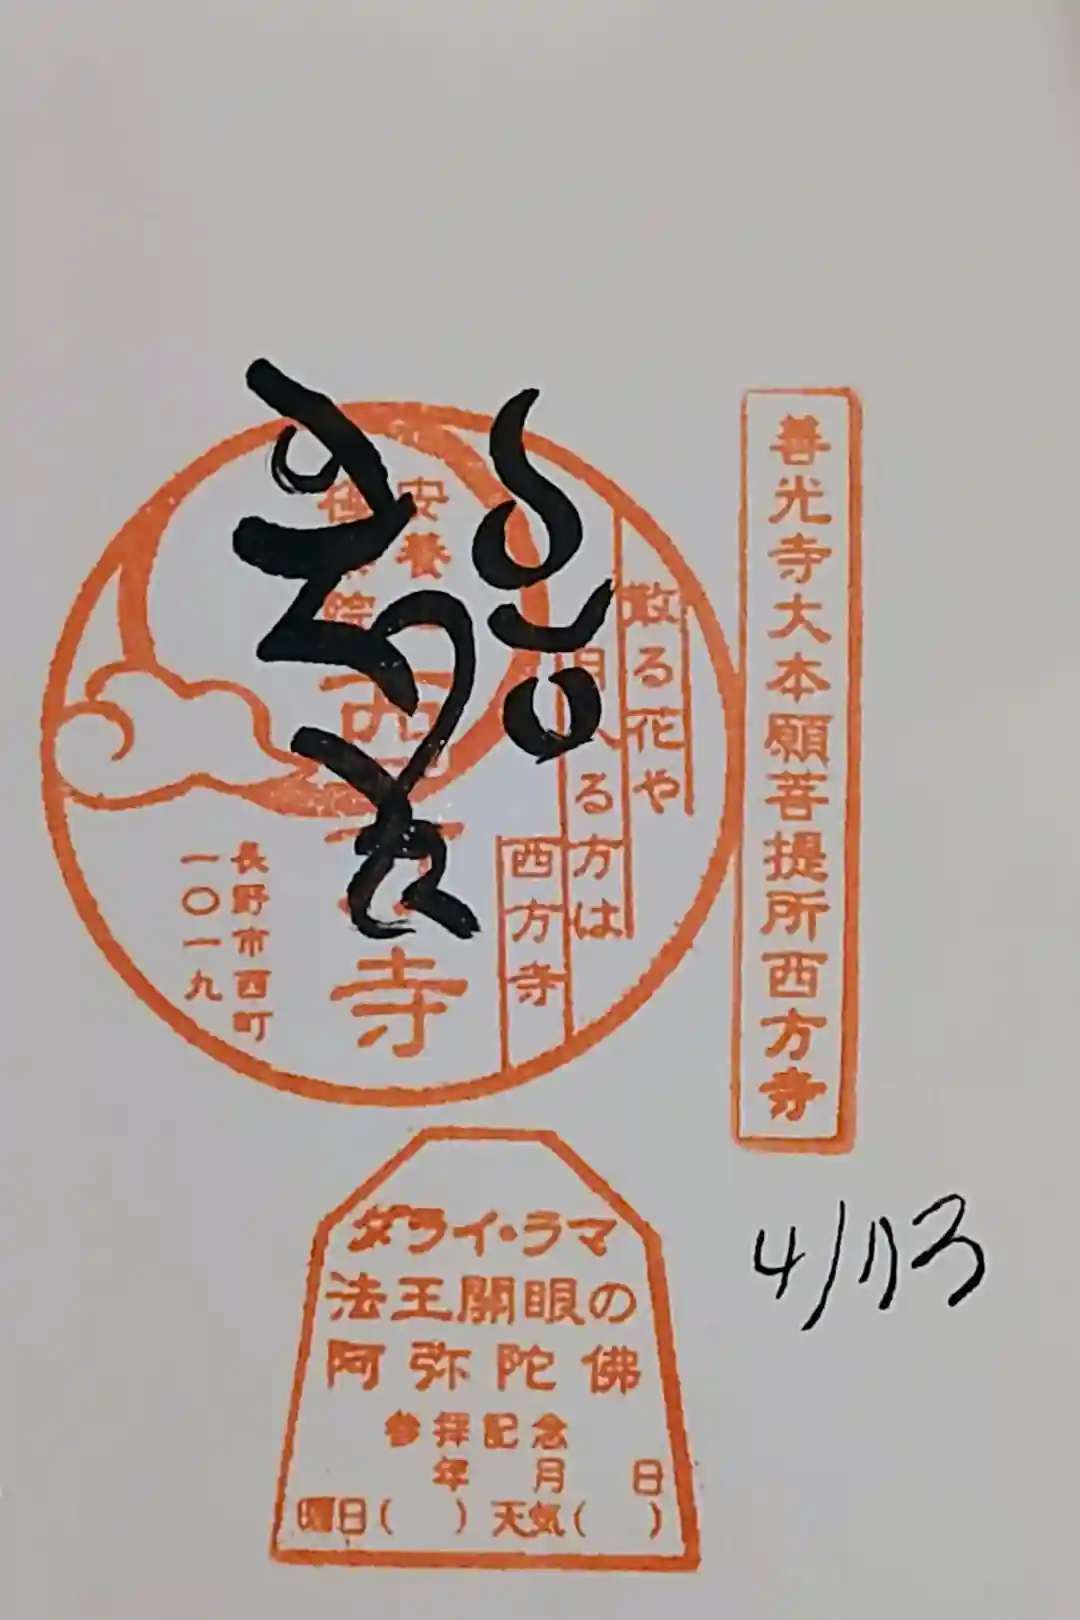 善光寺大本願菩提所西方寺
散る花や
月入る方は
西方寺
安養
院
寺
長野市西町
一〇一九
ダライ・ラマ
法王開眼の
阿弥陀佛
参拝記念
年 月 日
曜日( ) 天気( )
4/13